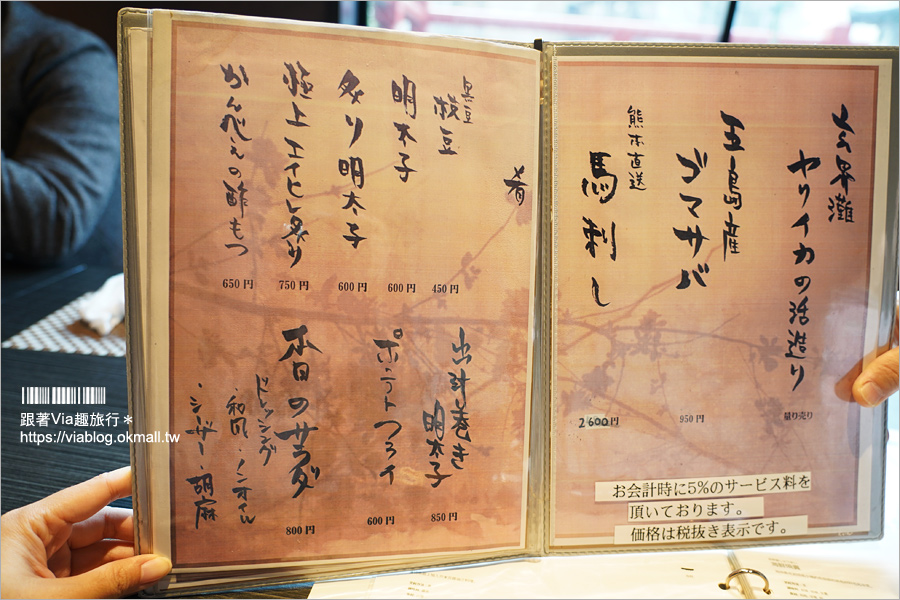 玄界灘
ヤリイカの活造り
量り売り
五島産
ゴマサバ
950円
熊本直送
馬刺し
2600円
お会計時に5%のサービス料を
頂いております。
価格は税抜き表示です。
肴
黒豆
枝豆
450円
明太子
600円
炙り明太子
600円
極上エイヒレ炙り
750円
かんべえの酢もつ
650円
出汁巻き
明太子
850円
ポテトフライ
600円
本日のサラダ
800円
ドレッシング
・和風・ノンオイル
・シーザー・胡麻
跟著Via趣旅行＊
https://viablog.okmall.tw